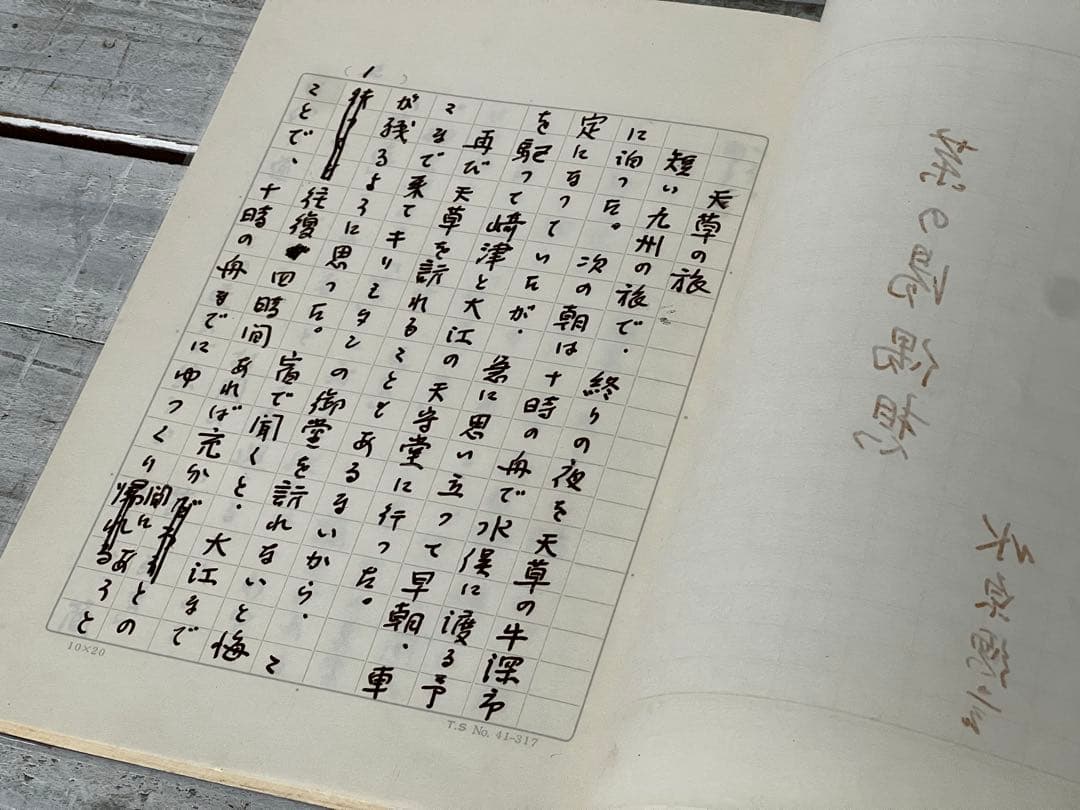 1
天草の旅
短い九州の旅で、終りの夜を天草の牛深市
に泊った。次の朝は十時の舟で水俣に渡る予
定になっていたが、急に思い立って早朝、車
を駆って崎津と大江の天守堂に行った。
再び天草を訪れることとあるまいから、こ
こまで来てキリシタンの御堂を訪れないと悔
が残るように思った。宿で聞くと、大江まで
往復四時間あれば充分との
ことで、十時の舟までにゆっくり帰れる間にあうと
10×20
T.S No. 41-317